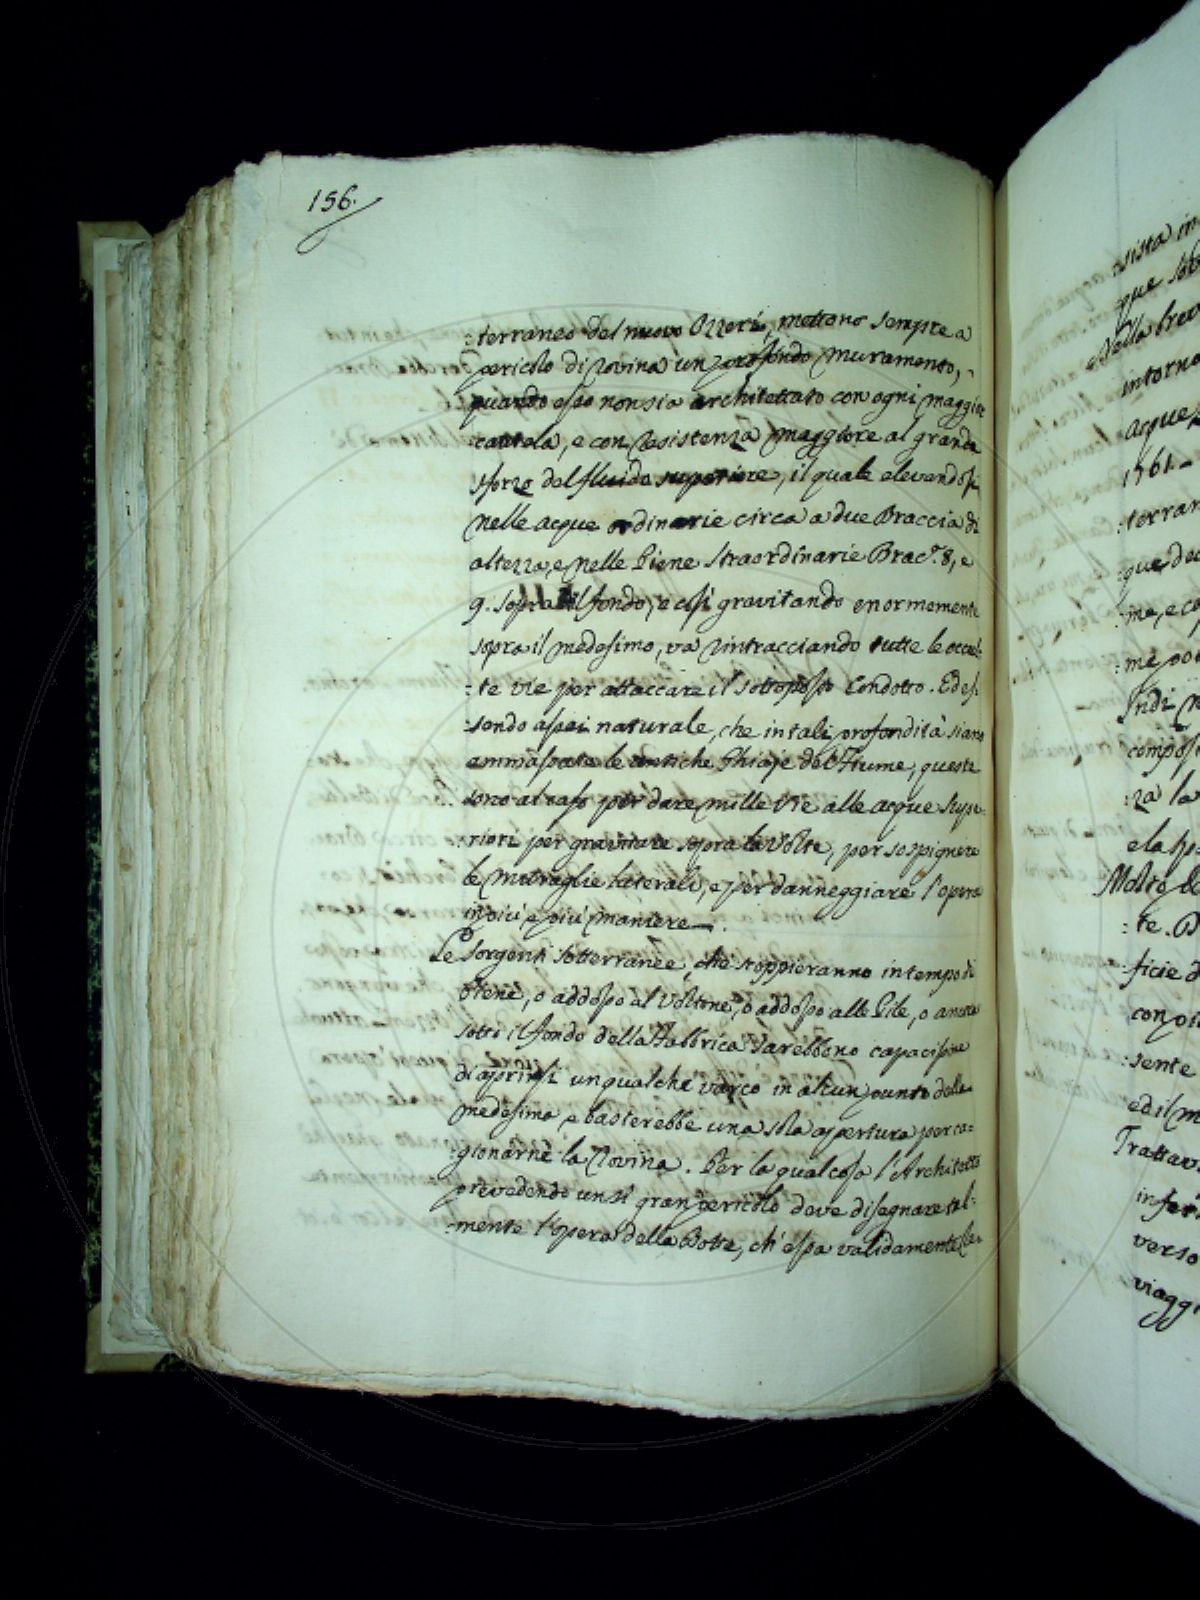 156.
:terraneo del nuovo Ozzeri, mettono sempre a
pericolo di rovina un profondo muramento,
quando esso non sia architettato con ogni maggior
cautela, e con resistenza maggiore al grande
sforzo del fluido superiore, il quale elevandosi
nelle acque ordinarie circa a due Braccia di
altezza, e nelle Piene straordinarie Brac.ª 8, e
9. sopra il fondo, e così gravitando enormemente
sopra il medesimo, và rintracciando tutte le occul:
:te vie per attaccare il sottoposto Condotto. Ed es:
:sendo assai naturale, che in tali profondità siano
ammassate le antiche Ghiaje del Fiume, queste
sono al caso per dare mille vie alle acque supe:
:riori per gravitare sopra la Volta, per sospignere
le muraglie laterali, e per danneggiare l'opera
in più e più maniere.
Le sorgenti sotterranee, che scoppieranno in tempo di
Piene, o addosso al Voltone, o addosso alle Pile, o ancora
sotto il fondo della Fabbrica sarebbono capacissime
di aprirsi un qualche varco in alcun punto della
medesima e basterebbe una sola apertura per ca=
:gionarne la rovina. Per la qual cosa l'Architetto
prevedendo un sì gran pericolo deve disegnare tal:
:mente l'opera della Botte, ch'essa validamente re:
:sista in
que
della brev
intorno
acque
1761.
:terran
que de
:me, e co
:me po
Indi
compos
:za la
e la sp
Molto
:te.
:ficie d
con
:sente
ed il m
Trattav
infer
verso
viagg